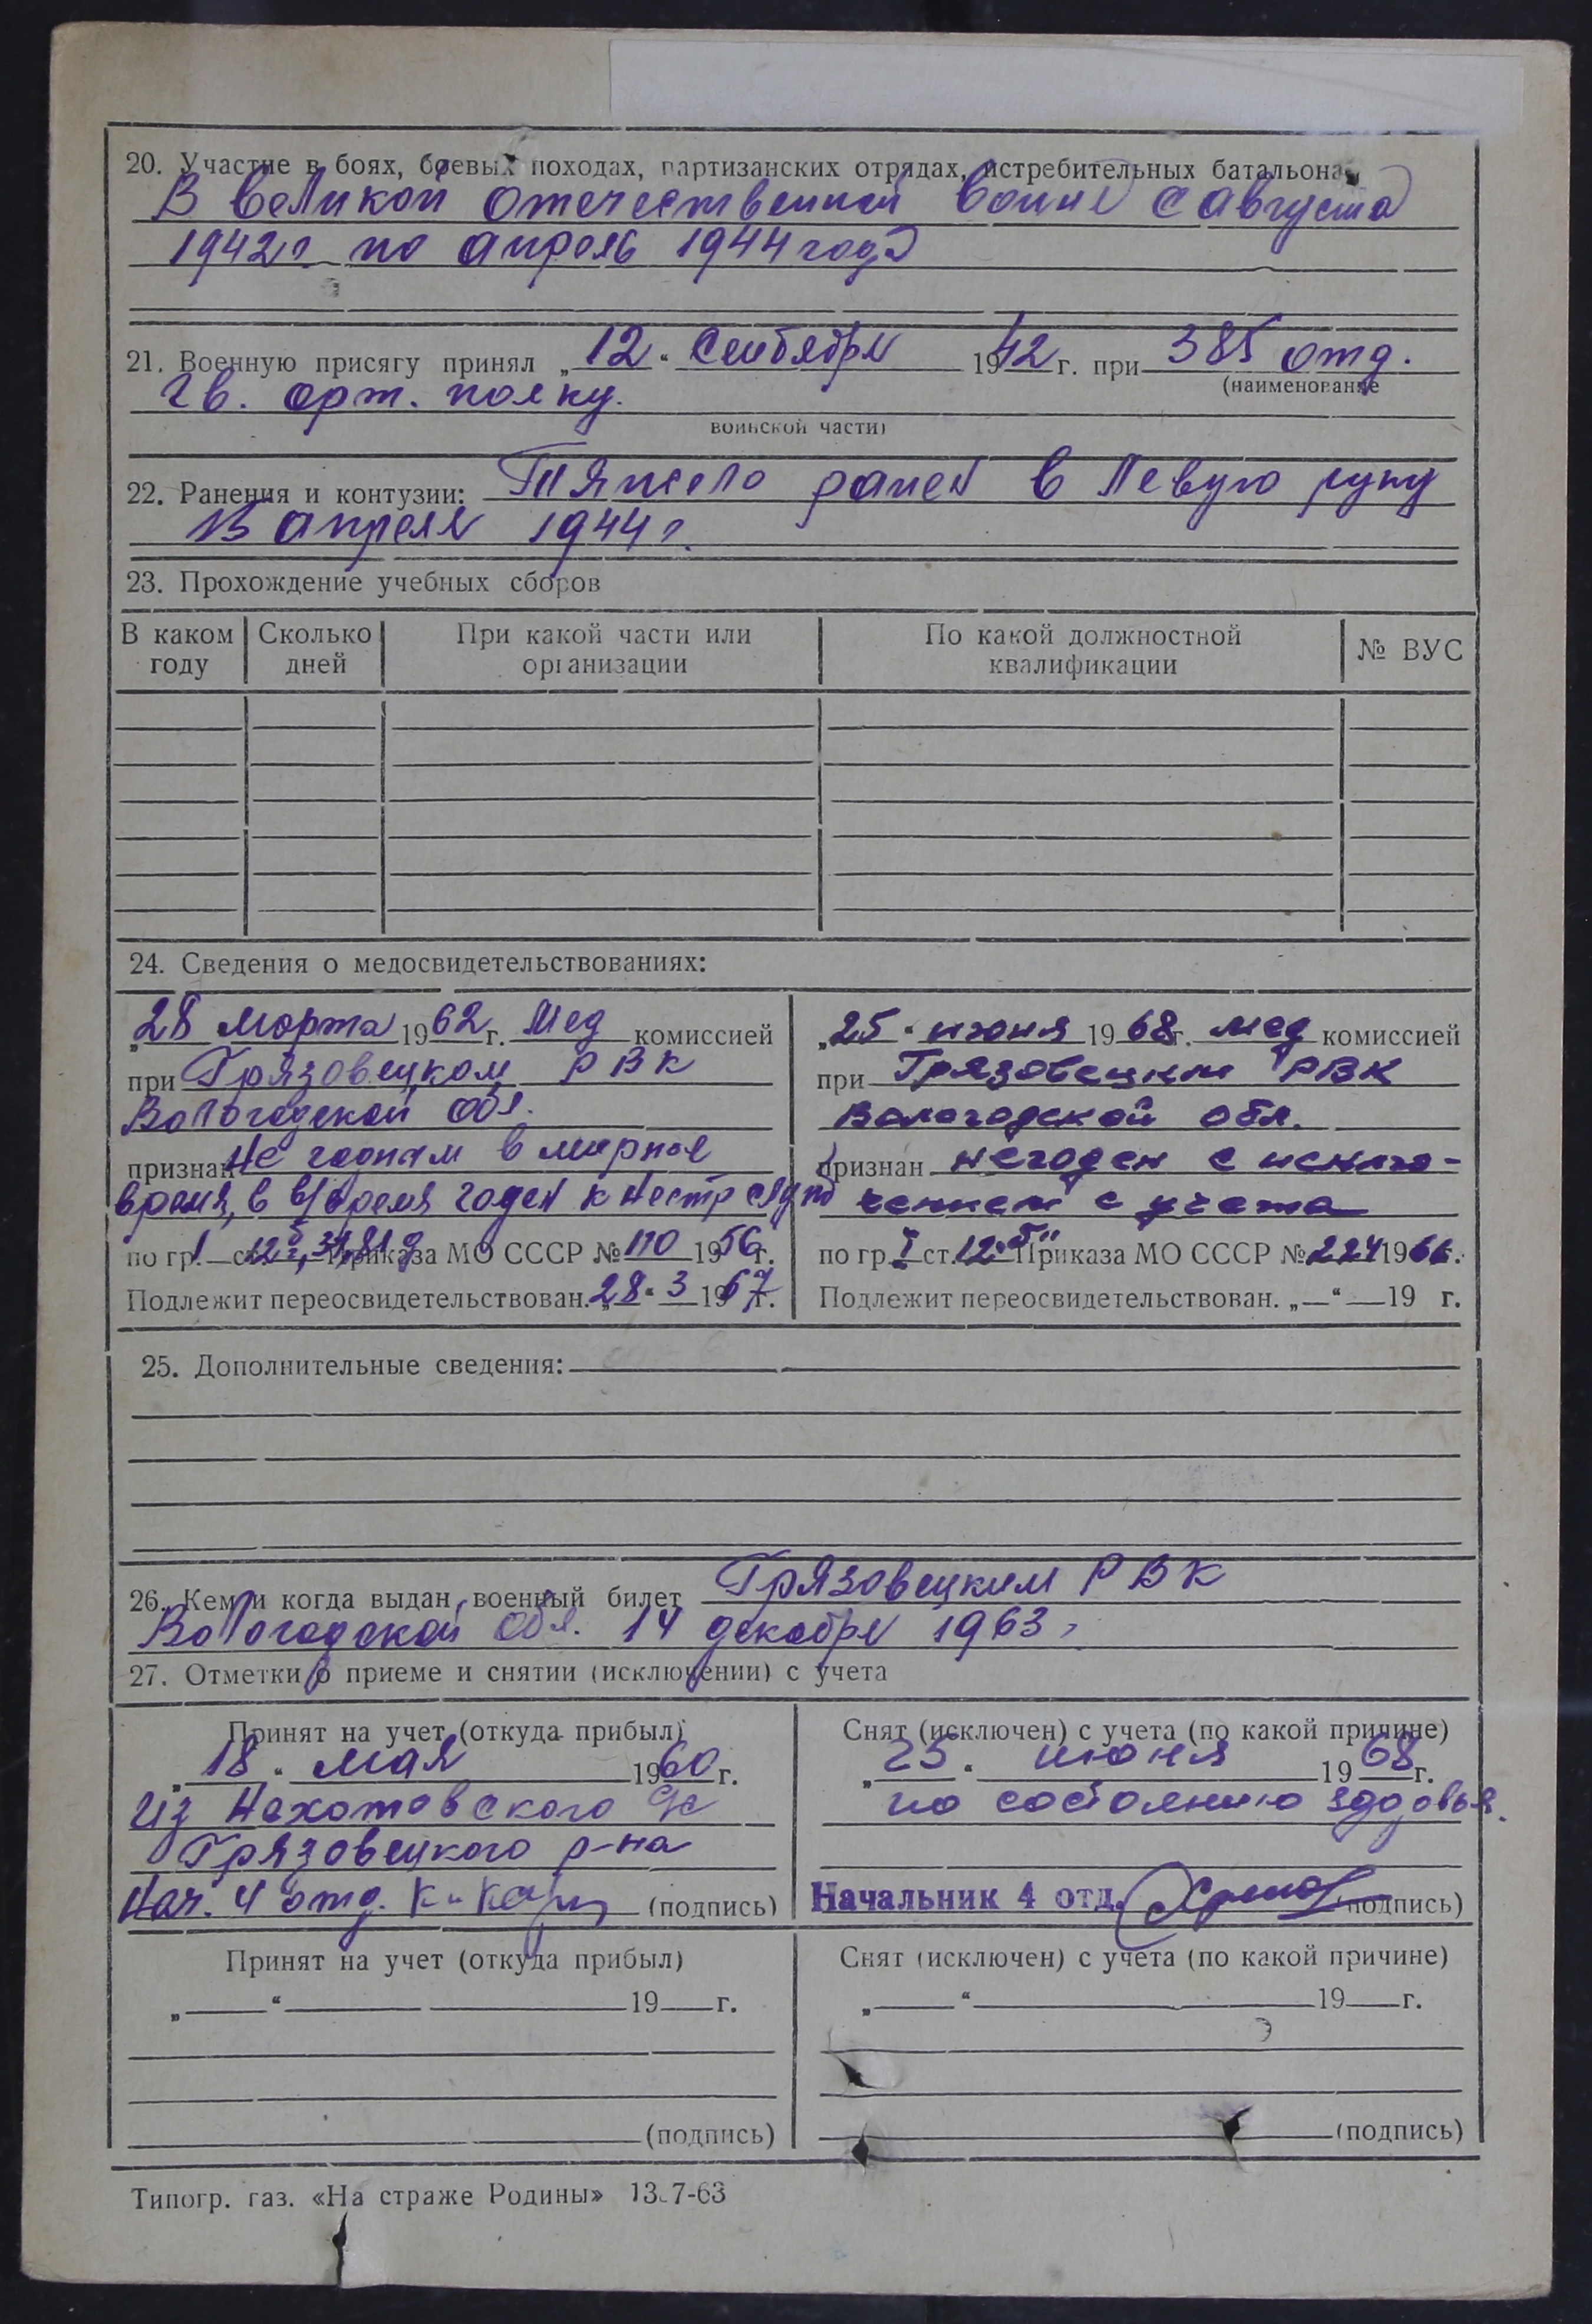 20. Участие в боях, боевых походах, партизанских отрядах, истребительных батальонах
В великой отечественной войне с августа
1942 г. по апрель 1944 года
21. Военную присягу принял „12“ Сентября 1942 г. при 385 отд.
(наименование
гв. арт. полку.
воинской части)
22. Ранения и контузии: Тяжело ранен в левую руку
15 апреля 1944 г.
23. Прохождение учебных сборов
В каком году
Сколько дней
При какой части или организации
По какой должностной квалификации
№ ВУС
24. Сведения о медосвидетельствованиях:
„28 марта 1962 г. мед комиссией
при Грязовецком РВК
Вологодской обл.
признан не годным в мирное
время, в в/время годен к нестр службе
по гр. 1 ст. 12 Приказа МО СССР № 110 1956 г.
Подлежит переосвидетельствован. „28“ 3 1967 г.
„25“ июня 1968 г. мед комиссией
при Грязовецком РВК
Вологодской обл.
признан негоден с исклю-
чением с учета
по гр. I ст. 12 „б“ Приказа МО СССР № 224 1966 г.
Подлежит переосвидетельствован. „—“ — 19 г.
25. Дополнительные сведения:
26. Кем и когда выдан военный билет Грязовецким РВК
Вологодской обл. 14 декабря 1963 г
27. Отметки о приеме и снятии (исключении) с учета
Принят на учет (откуда прибыл)
„18“ мая 1960 г.
из с/с
Грязовецкого р-на
Нач. 4 отд. к-н (подпись)
Снят (исключен) с учета (по какой причине)
„25“ июня 1968 г.
по состоянию здоровья.
Начальник 4 отд. (подпись)
Принят на учет (откуда прибыл)
„ “ 19 г.
(подпись)
Снят (исключен) с учета (по какой причине)
„ “ 19 г.
(подпись)
Типогр. газ. «На страже Родины» 13.7-63